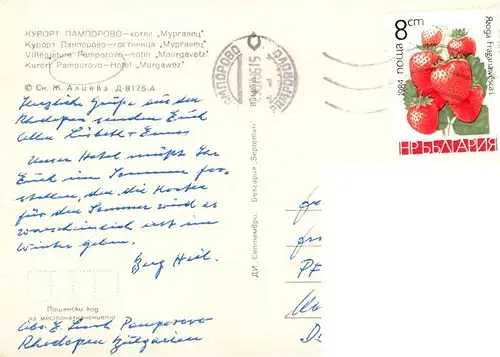 КУРОРТ ПАМПОРОВО—хотел „Мургавец"
Курорт Пампорово—гостиница „Мургавец"
Villégiature Pamporovo—hôtel „Mourgavetz"
Kurort Pamporovo—Hotel „Murgawez"
© Сн. Ж. Алиева Д-8175-А
Herzliche Grüße aus den
Rhodopen senden Euch
Allen Lisbeth +
Unser Hotel müßt Ihr
Euch im Sommer vor-
stellen, den die Karten
für den Sommer wird es
warscheinlich erst im
Winter geben.
Berg Heil.
Пощенски код
на местоназначението
Abs. E. Pamporovo
Rhodopen Bulgarien
ДИ „Септември" България „Septemvri"
ПАМПОРОВО
PAMPOROVO
8 cm
поща
1984
НР БЪЛГАРИЯ